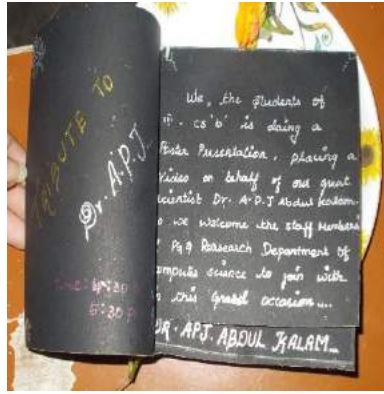 TRIBUTE TO
Dr. A.P.J.
Time: 4:30
5:30 P
We, the students of
III - cs 'b' is doing a
Poster Presentation, placing a
Video on behalf of our great
scientist Dr. A.P.J Abdul Kalam.
so we welcome the staff Members
PG & Research Department of
computer science to join with
this grand occasion....
DR. APJ. ABDUL KALAM...